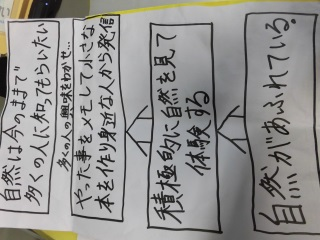 自然は今のままで
多くの人に知ってもらいたい
多くの人の興味をわかせ…
やった事をメモして小さな
本を作り身近な人から発信
積極的に自然を見て
体験する
自然があふれている。